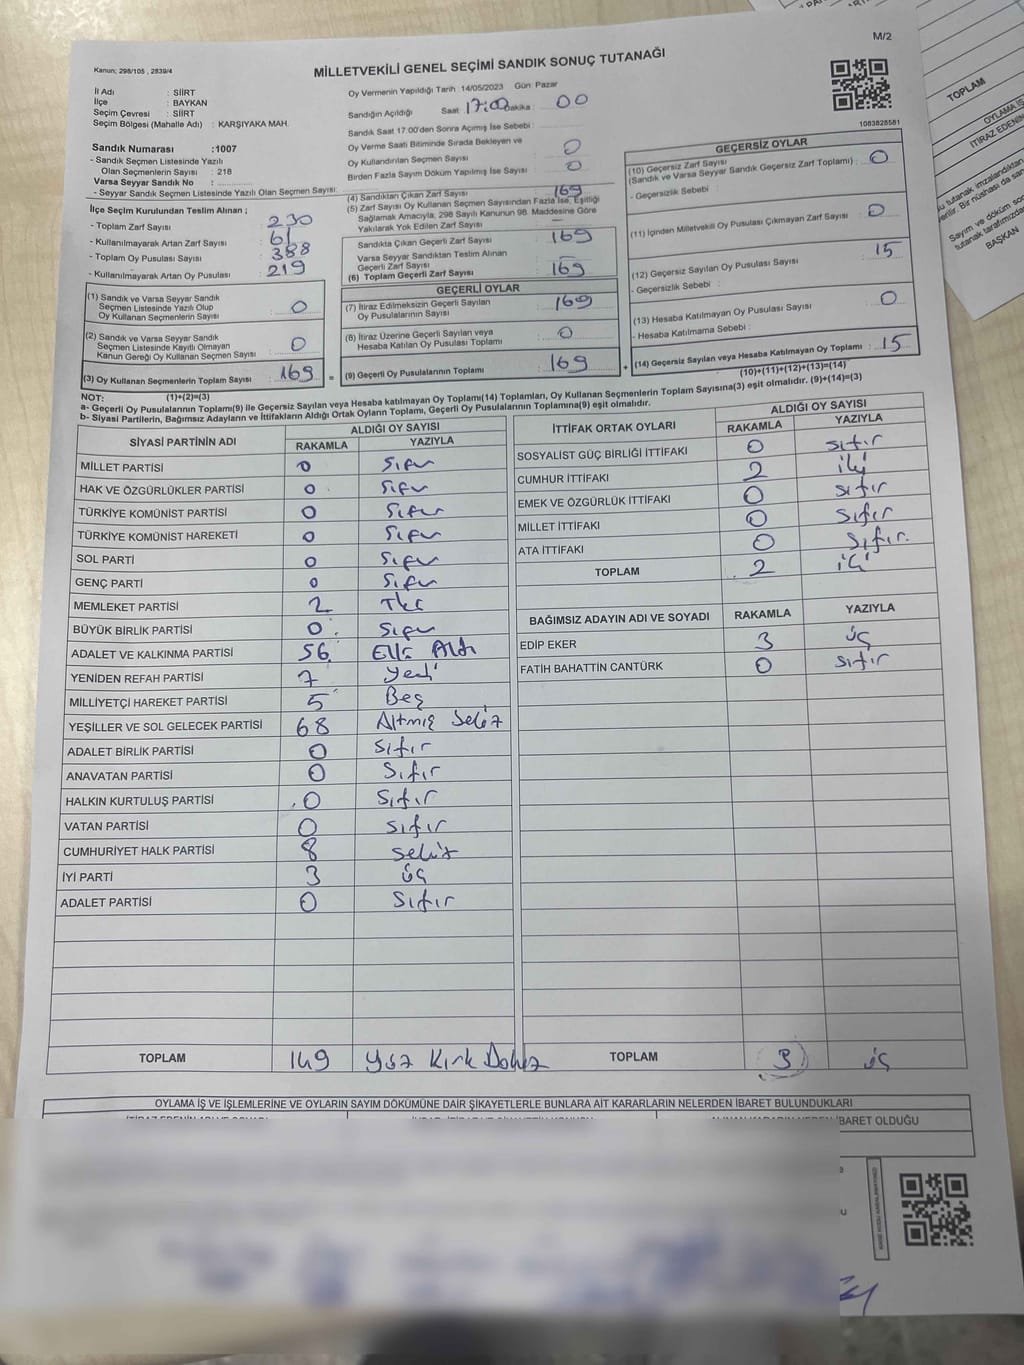 M/2
Kanun; 298/105 , 2839/4
MİLLETVEKİLİ GENEL SEÇİMİ SANDIK SONUÇ TUTANAĞI
İl Adı : SİİRT
İlçe : BAYKAN
Seçim Çevresi : SİİRT
Seçim Bölgesi (Mahalle Adı) : KARŞIYAKA MAH.
Sandık Numarası :1007
- Sandık Seçmen Listesinde Yazılı
Olan Seçmenlerin Sayısı : 218
Varsa Seyyar Sandık No :
- Seyyar Sandık Seçmen Listesinde Yazılı Olan Seçmen Sayısı:
Oy Vermenin Yapıldığı Tarih 14/05/2023 Gün Pazar
Sandığın Açıldığı Saat 17:00 Dakika : 00
Sandık Saat 17.00'den Sonra Açmış İse Sebebi :
Oy Verme Saati Bitiminde Sırada Bekleyen ve
Oy Kullandırılan Seçmen Sayısı 0
Birden Fazla Sayım Döküm Yapılmış İse Sayısı 0
1083828581
İlçe Seçim Kurulundan Teslim Alınan ;
- Toplam Zarf Sayısı : 230
- Kullanılmayarak Artan Zarf Sayısı : 61
- Toplam Oy Pusulası Sayısı : 388
- Kullanılmayarak Artan Oy Pusulası : 219
(1) Sandık ve Varsa Seyyar Sandık
Seçmen Listesinde Yazılı Olup
Oy Kullanan Seçmenlerin Sayısı : 0
(2) Sandık ve Varsa Seyyar Sandık
Seçmen Listesinde Kayıtlı Olmayan
Kanun Gereği Oy Kullanan Seçmen Sayısı : 0
(3) Oy Kullanan Seçmenlerin Toplam Sayısı : 169
(4) Sandıktan Çıkan Zarf Sayısı 169
(5) Zarf Sayısı Oy Kullanan Seçmen Sayısından Fazla İse, Eşitliği
Sağlamak Amacıyla, 298 Sayılı Kanunun 98. Maddesine Göre
Yakılarak Yok Edilen Zarf Sayısı : –
Sandıkta Çıkan Geçerli Zarf Sayısı : 169
Varsa Seyyar Sandıktan Teslim Alınan
Geçerli Zarf Sayısı
(6) Toplam Geçerli Zarf Sayısı : 169
GEÇERLİ OYLAR
(7) İtiraz Edilmeksizin Geçerli Sayılan
Oy Pusulalarının Sayısı : 169
(8) İtiraz Üzerine Geçerli Sayılan veya
Hesaba Katılan Oy Pusulası Toplamı : 0
= (9) Geçerli Oy Pusulalarının Toplamı : 169
GEÇERSİZ OYLAR
(10) Geçersiz Zarf Sayısı
(Sandık ve Varsa Seyyar Sandık Geçersiz Zarf Toplamı) : 0
- Geçersizlik Sebebi :
(11) İçinden Milletvekili Oy Pusulası Çıkmayan Zarf Sayısı : 0
(12) Geçersiz Sayılan Oy Pusulası Sayısı : 15
- Geçersizlik Sebebi :
(13) Hesaba Katılmayan Oy Pusulası Sayısı : 0
- Hesaba Katılmama Sebebi :
+ (14) Geçersiz Sayılan veya Hesaba Katılmayan Oy Toplamı : 15
(10)+(11)+(12)+(13)=(14)
NOT: (1)+(2)=(3)
a- Geçerli Oy Pusulalarının Toplamı(9) ile Geçersiz Sayılan veya Hesaba katılmayan Oy Toplamı(14) Toplamları, Oy Kullanan Seçmenlerin Toplam Sayısına(3) eşit olmalıdır. (9)+(14)=(3)
b- Siyasi Partilerin, Bağımsız Adayların ve İttifakların Aldığı Ortak Oyların Toplamı, Geçerli Oy Pusulalarının Toplamına(9) eşit olmalıdır.
SİYASİ PARTİNİN ADI ALDIĞI OY SAYISI
RAKAMLA YAZIYLA
MİLLET PARTİSİ 0 Sıfır
HAK VE ÖZGÜRLÜKLER PARTİSİ 0 Sıfır
TÜRKİYE KOMÜNİST PARTİSİ 0 Sıfır
TÜRKİYE KOMÜNİST HAREKETİ 0 Sıfır
SOL PARTİ 0 Sıfır
GENÇ PARTİ 0 Sıfır
MEMLEKET PARTİSİ 2 İki
BÜYÜK BİRLİK PARTİSİ 0 Sıfır
ADALET VE KALKINMA PARTİSİ 56 Elli Altı
YENİDEN REFAH PARTİSİ 7 Yedi
MİLLİYETÇİ HAREKET PARTİSİ 5 Beş
YEŞİLLER VE SOL GELECEK PARTİSİ 68 Altmış Sekiz
ADALET BİRLİK PARTİSİ 0 Sıfır
ANAVATAN PARTİSİ 0 Sıfır
HALKIN KURTULUŞ PARTİSİ 0 Sıfır
VATAN PARTİSİ 0 Sıfır
CUMHURİYET HALK PARTİSİ 8 Sekiz
İYİ PARTİ 3 üç
ADALET PARTİSİ 0 Sıfır
TOPLAM 149 Yüz Kırk Dokuz
İTTİFAK ORTAK OYLARI ALDIĞI OY SAYISI
RAKAMLA YAZIYLA
SOSYALİST GÜÇ BİRLİĞİ İTTİFAKI 0 sıfır
CUMHUR İTTİFAKI 2 iki
EMEK VE ÖZGÜRLÜK İTTİFAKI 0 sıfır
MİLLET İTTİFAKI 0 sıfır
ATA İTTİFAKI 0 sıfır.
TOPLAM 2 iki
BAĞIMSIZ ADAYIN ADI VE SOYADI RAKAMLA YAZIYLA
EDİP EKER 3 üç
FATİH BAHATTİN CANTÜRK 0 sıfır
TOPLAM 3 üç
OYLAMA İŞ VE İŞLEMLERİNE VE OYLARIN SAYIM DÖKÜMÜNE DAİR ŞİKAYETLERLE BUNLARA AİT KARARLARIN NELERDEN İBARET BULUNDUKLARI
İBARET OLDUĞU
TOPLAM
BAŞKAN